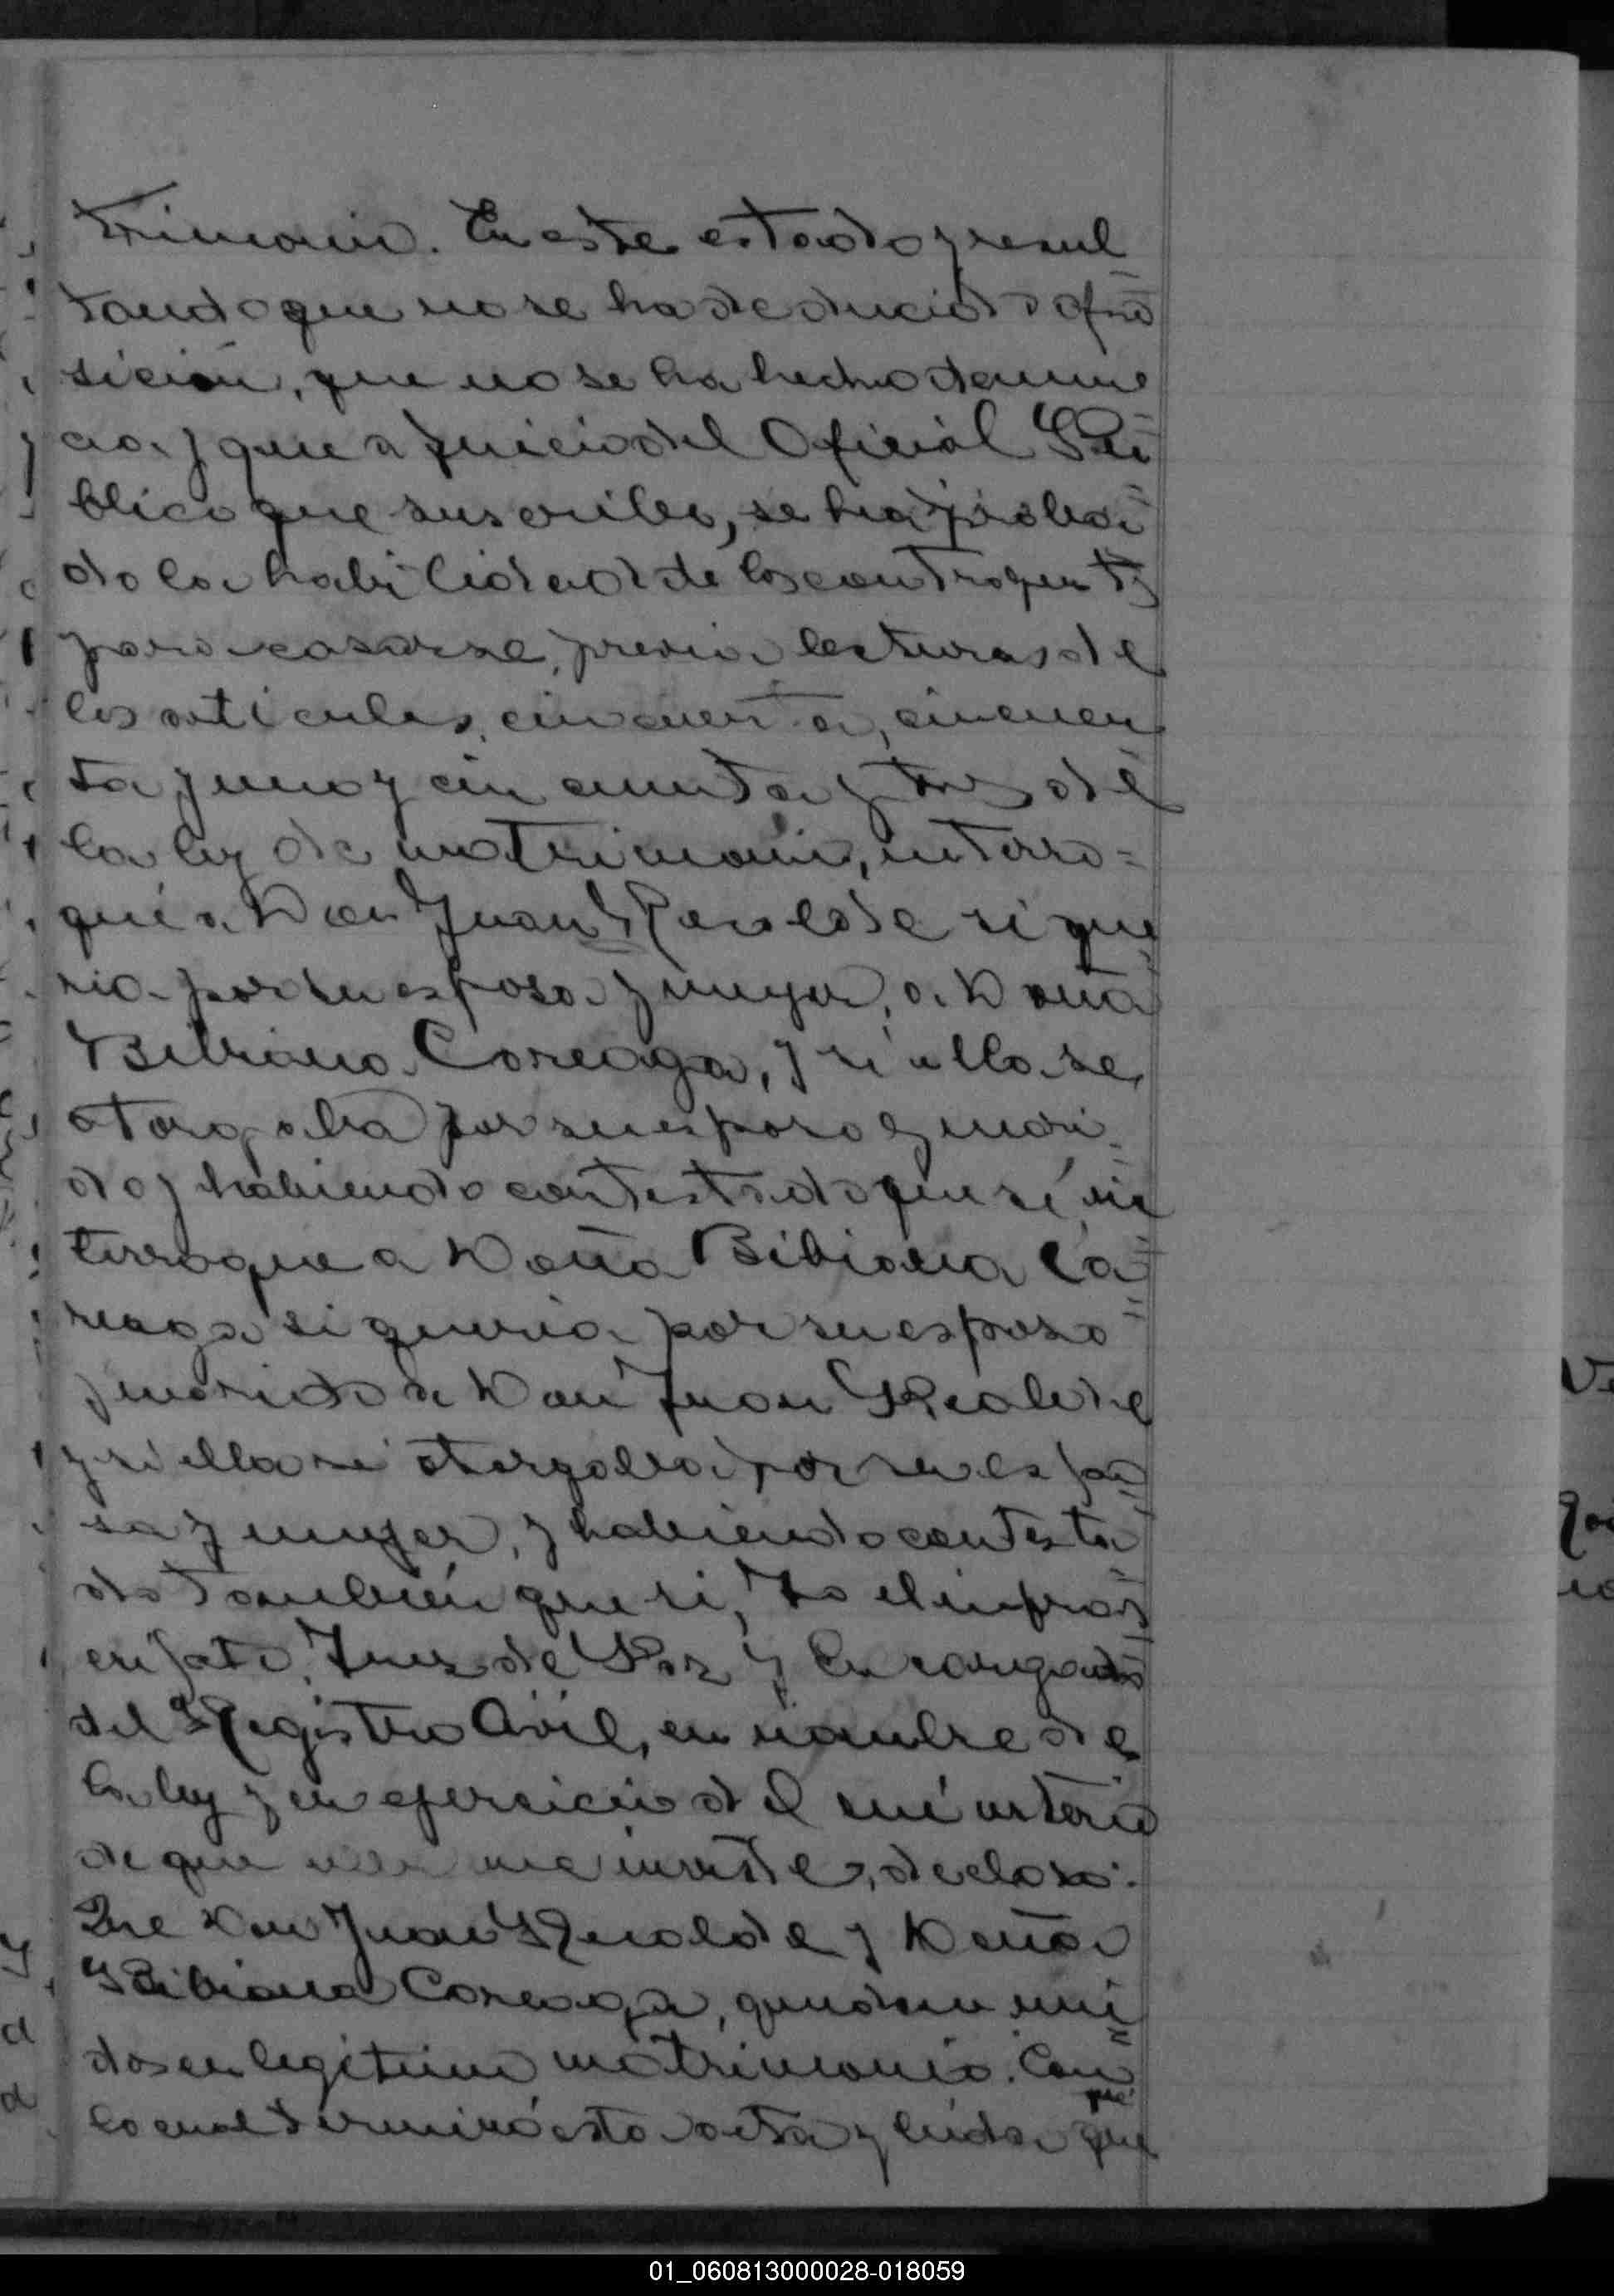 trimonio. En este estado y resul
tando que no se ha deducido opo
sición, que no se ha hecho denun
cia y que a juicio del Oficial Pú
blico que suscribe, se ha proba
do la habilidad de los contrayentes
para casarse, previa lectura de
los artículos cincuenta, cincuen
ta y uno y cincuenta y tres de
la ley de matrimonio, interro=
gué a Don Juan Recalde si que
ria por su esposa y mujer, a Doña
Bibiana Careaga, y si a ella se
otorgaba por su esposo y mari
do y habiendo contestado que sí in
terrogue a Doña Bibiana Ca
reaga si queria por su esposo
y marido a Don Juan Recalde
y si ella se otorgaba por su espo
sa y mujer, y habiendo contesta
do también que si, Yo el infras
cripto, Juez de Paz y Encargado
del Registro Civil, en nombre de
la ley y en ejercicio del ministerio
de que me inviste, declaro:
Que Don Juan Recalde y Doña
Bibiana Careaga, quedan uni
dos en legitimo matrimonio. Con
lo cual terminó esta acta y leida que
01_060813000028-018059